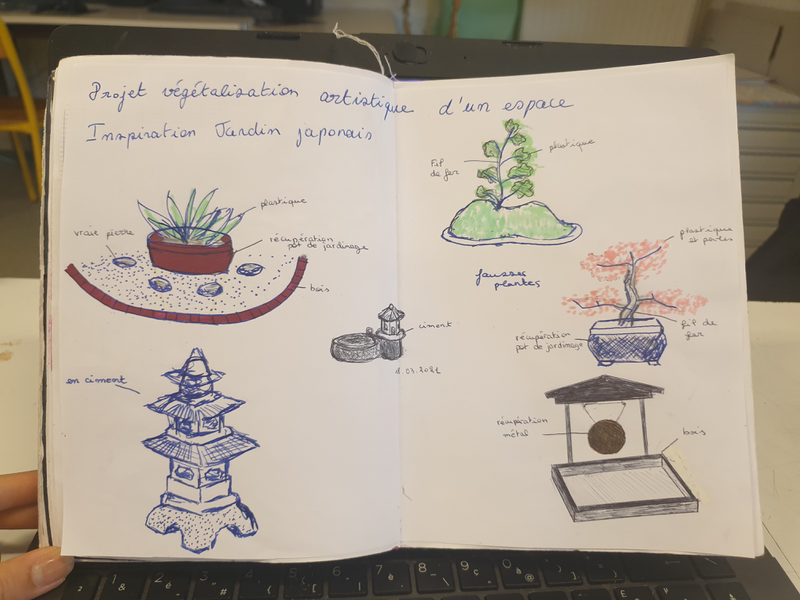 Projet végétalisation artistique d'un espace
Inspiration Jardin japonais
plastique
vraie pierre
récupération
pot de jardinage
bois
en ciment
ciment
Fil
de fer
plastique
fausses
plantes
plastique
récupération
pot de jardinage
fil de
fer
récupération
métal
bois